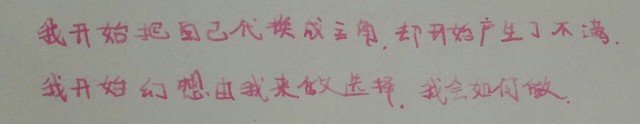 我开始把自己代换成主角，却开始产生了不满。
我开始幻想由我来做选择，我会如何做。